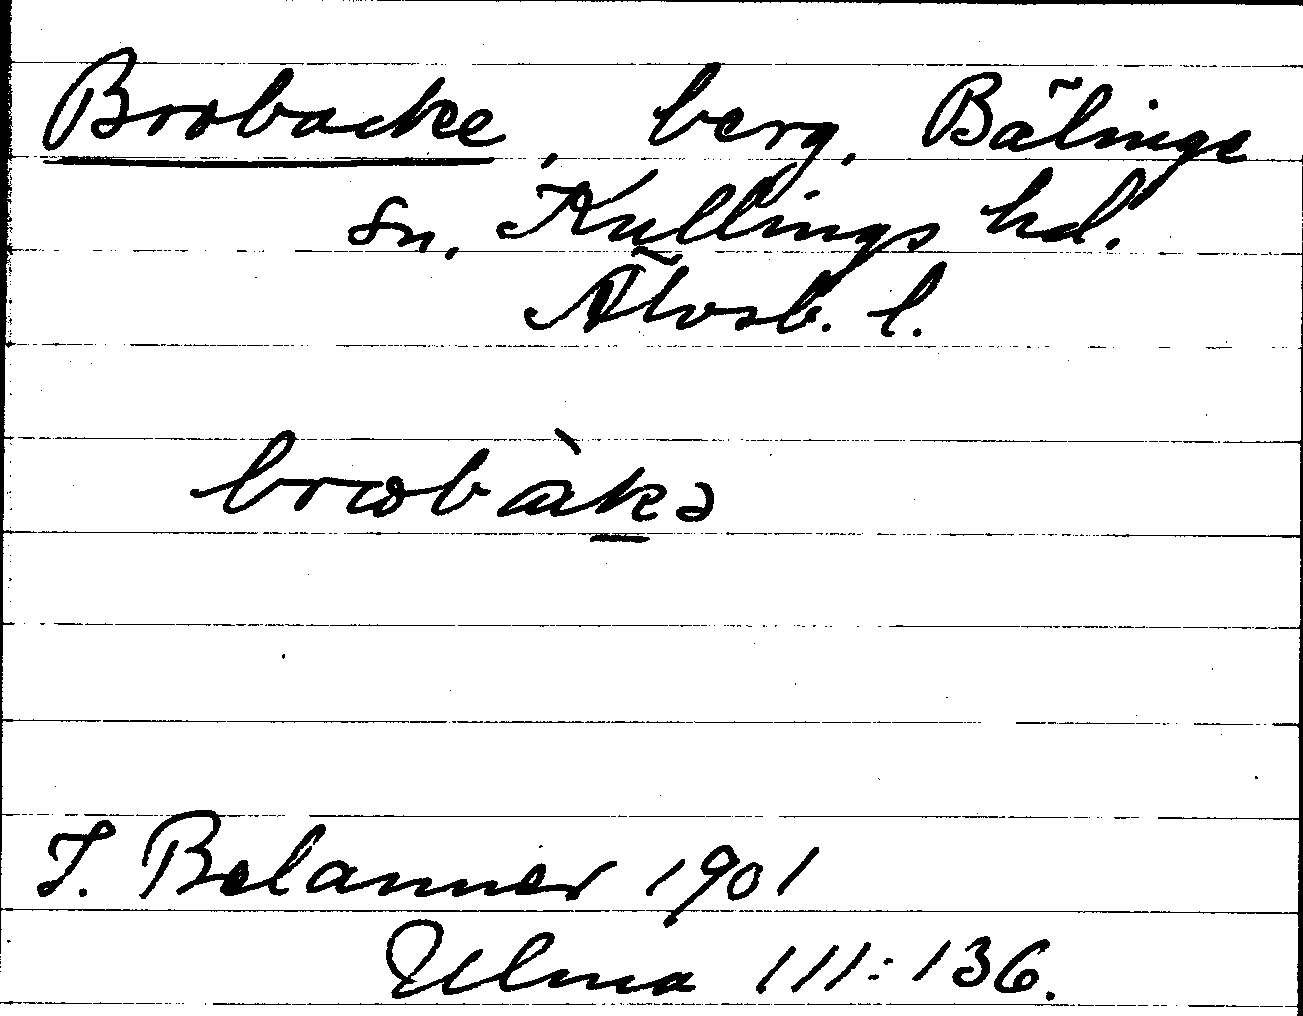 Brobacke, berg, Bälinge
sn, Kullings hd.
Älvsb. l.
brωbàkə
T. Belanner 1901
Ulma 111:136.